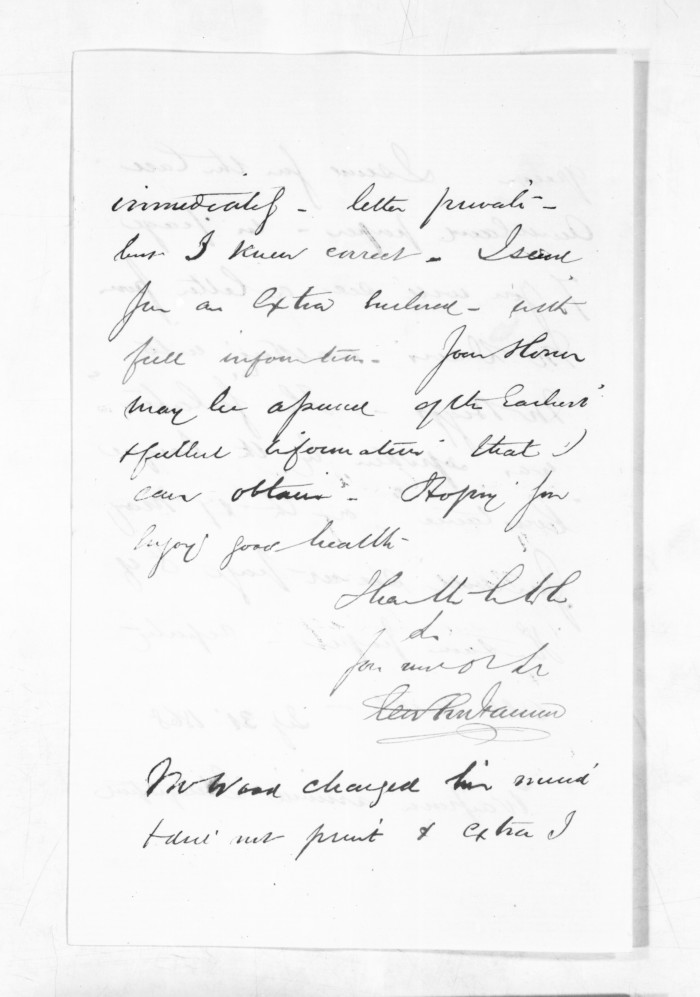 immediately - letter private -
but I know correct - I send
you an Extra Enclosed - with
full information - Your Honor
may be assured of the Earliest
& fullest information that I
can obtain - Hoping you
Enjoy good health -
I have the
Your

Mr Wood changed his mind
& did not print & extra I